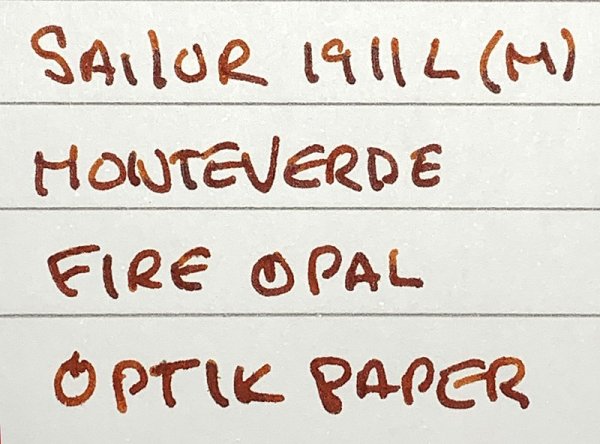 SAILOR 1911L (M)
MONTEVERDE
FIRE OPAL
OPTIK PAPER